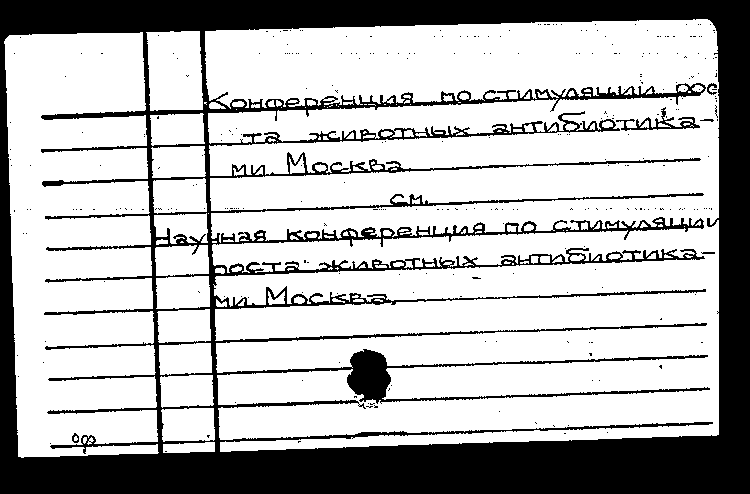 Конференция по стимуляции рос
та животных антибиотика-
ми. Москва
см.
Научная конференция по стимуляции
роста животных антибиотика-
ми. Москва.